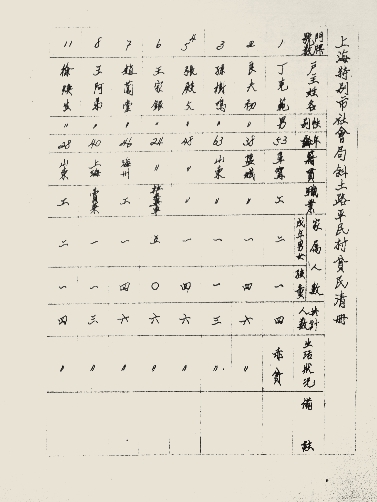 上海特別市社會局斜土路平民村貧民清冊
門牌號數 戶主姓名 性別 年齡 籍貫 職業 家屬人數 成年男女 孩童 共計人數 生活狀況 備註
1 丁克範 男 53 阜寧 工 二 一 四 赤貧
2 良大初 〃 38 鹽城 〃 一 四 六 〃
3 孫樹 〃 63 山東 〃 一 一 三 〃
5 張殿文 〃 48 〃 〃 一 四 六 〃
6 王家銀 〃 24 〃 五 0 六 〃
7 趙蘭堂 〃 46 海州 工 一 四 六 〃
8 王阿弟 〃 40 上海 賣菜 一 一 三 〃
11 徐 〃 28 山東 工 二 一 四 〃